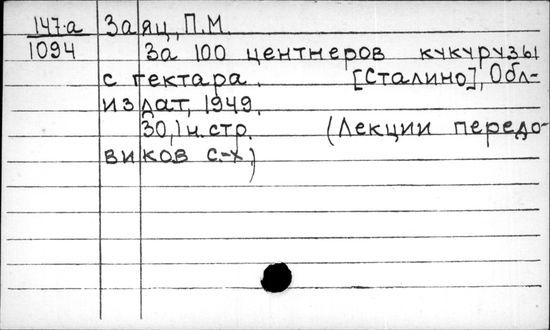 147-а Заяц, П.М.
1094 За 100 центнеров кукурузы
с гектара. [Сталино], Обл-
издат, 1949.
30, 1 н. стр. (Лекции передо-
виков с.-х.)